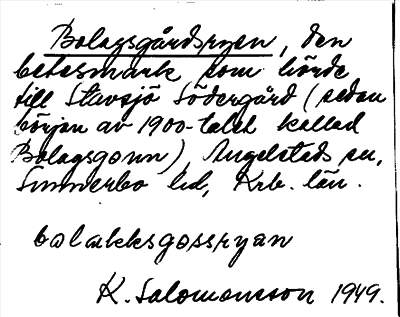 Bolagsgårdsryen, den
betesmark som hörde
till Stavsjö Södergård (sedan
början av 1900-talet kallad
Bolagsgonn), Angelstads sn,
Sunnerbo hd, Krb. län.
balakksgossryan
K. Salomonsson 1949.